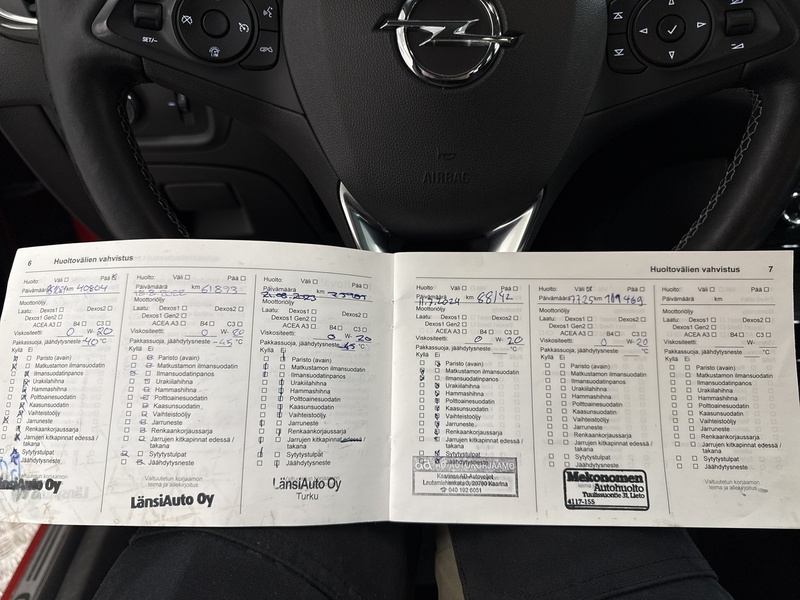 SET/–
AIRBAG
6 Huoltovälien vahvistus
Huolto: Väli Pää
Päivämäärä km 40804
Moottoriöljy
Laatu: Dexos1 Dexos2
Dexos1 Gen2
ACEA A3 B4 C3
Viskositeetti 0 W- 20
Pakkassuoja, jäähdytysneste -40 °C
Kyllä Ei
Paristo (avain)
Matkustamon ilmansuodatin
Ilmansuodatinpanos
Urakiilahihna
Hammashihna
Polttoainesuodatin
Kaasunsuodatin
Vaihteistoöljy
Jarruneste
Renkaankorjaussarja
Jarrujen kitkapinnat edessä /
takana
Sytytystulpat
Jäähdytysneste
Valtuutetun korjaamon
leima ja allekirjoitus
LänsiAuto Oy
Huolto: Väli Pää
Päivämäärä km 61893
Moottoriöljy
Laatu: Dexos1 Dexos2
Dexos1 Gen2
ACEA A3 B4 C3
Viskositeetti 0 W- 20
Pakkassuoja, jäähdytysneste -45 °C
Kyllä Ei
Paristo (avain)
Matkustamon ilmansuodatin
Ilmansuodatinpanos
Urakiilahihna
Hammashihna
Polttoainesuodatin
Kaasunsuodatin
Vaihteistoöljy
Jarruneste
Renkaankorjaussarja
Jarrujen kitkapinnat edessä /
takana
Sytytystulpat
Jäähdytysneste
Valtuutetun korjaamon
leima ja allekirjoitus
LänsiAuto Oy
Huolto: Väli Pää
Päivämäärä km
Moottoriöljy
Laatu: Dexos1 Dexos2
Dexos1 Gen2
ACEA A3 B4 C3
Viskositeetti 0 W- 20
Pakkassuoja, jäähdytysneste -45 °C
Kyllä Ei
Paristo (avain)
Matkustamon ilmansuodatin
Ilmansuodatinpanos
Urakiilahihna
Hammashihna
Polttoainesuodatin
Kaasunsuodatin
Vaihteistoöljy
Jarruneste
Renkaankorjaussarja
Jarrujen kitkapinnat edessä /
takana
Sytytystulpat
Jäähdytysneste
LänsiAuto Oy
Turku
Huoltovälien vahvistus 7
Huolto: Väli Pää
Päivämäärä 11.7.2024 km 88142
Moottoriöljy
Laatu: Dexos1 Dexos2
Dexos1 Gen2
ACEA A3 B4 C3
Viskositeetti 0 W- 20
Pakkassuoja, jäähdytysneste °C
Kyllä Ei
Paristo (avain)
Matkustamon ilmansuodatin
Ilmansuodatinpanos
Urakiilahihna
Hammashihna
Polttoainesuodatin
Kaasunsuodatin
Vaihteistoöljy
Jarruneste
Renkaankorjaussarja
Jarrujen kitkapinnat edessä /
takana
Sytytystulpat
Jäähdytysneste
Kaarinan AD-Autoveljet
20780 Kaarina
Huolto: Väli Pää
Päivämäärä km
Moottoriöljy
Laatu: Dexos1 Dexos2
Dexos1 Gen2
ACEA A3 B4 C3
Viskositeetti 0 W- 20
Pakkassuoja, jäähdytysneste °C
Kyllä Ei
Paristo (avain)
Matkustamon ilmansuodatin
Ilmansuodatinpanos
Urakiilahihna
Hammashihna
Polttoainesuodatin
Kaasunsuodatin
Vaihteistoöljy
Jarruneste
Renkaankorjaussarja
Jarrujen kitkapinnat edessä /
takana
Sytytystulpat
Jäähdytysneste
Mekonomen
Autohuolto
Tuulissuontie 31, Lieto
4117-155
Huolto: Väli Pää
Päivämäärä km
Moottoriöljy
Laatu: Dexos1 Dexos2
Dexos1 Gen2
ACEA A3 B4 C3
Viskositeetti W-
Pakkassuoja, jäähdytysneste °C
Kyllä Ei
Paristo (avain)
Matkustamon ilmansuodatin
Ilmansuodatinpanos
Urakiilahihna
Hammashihna
Polttoainesuodatin
Kaasunsuodatin
Vaihteistoöljy
Jarruneste
Renkaankorjaussarja
Jarrujen kitkapinnat edessä /
takana
Sytytystulpat
Jäähdytysneste
Valtuutetun korjaamon
leima ja allekirjoitus